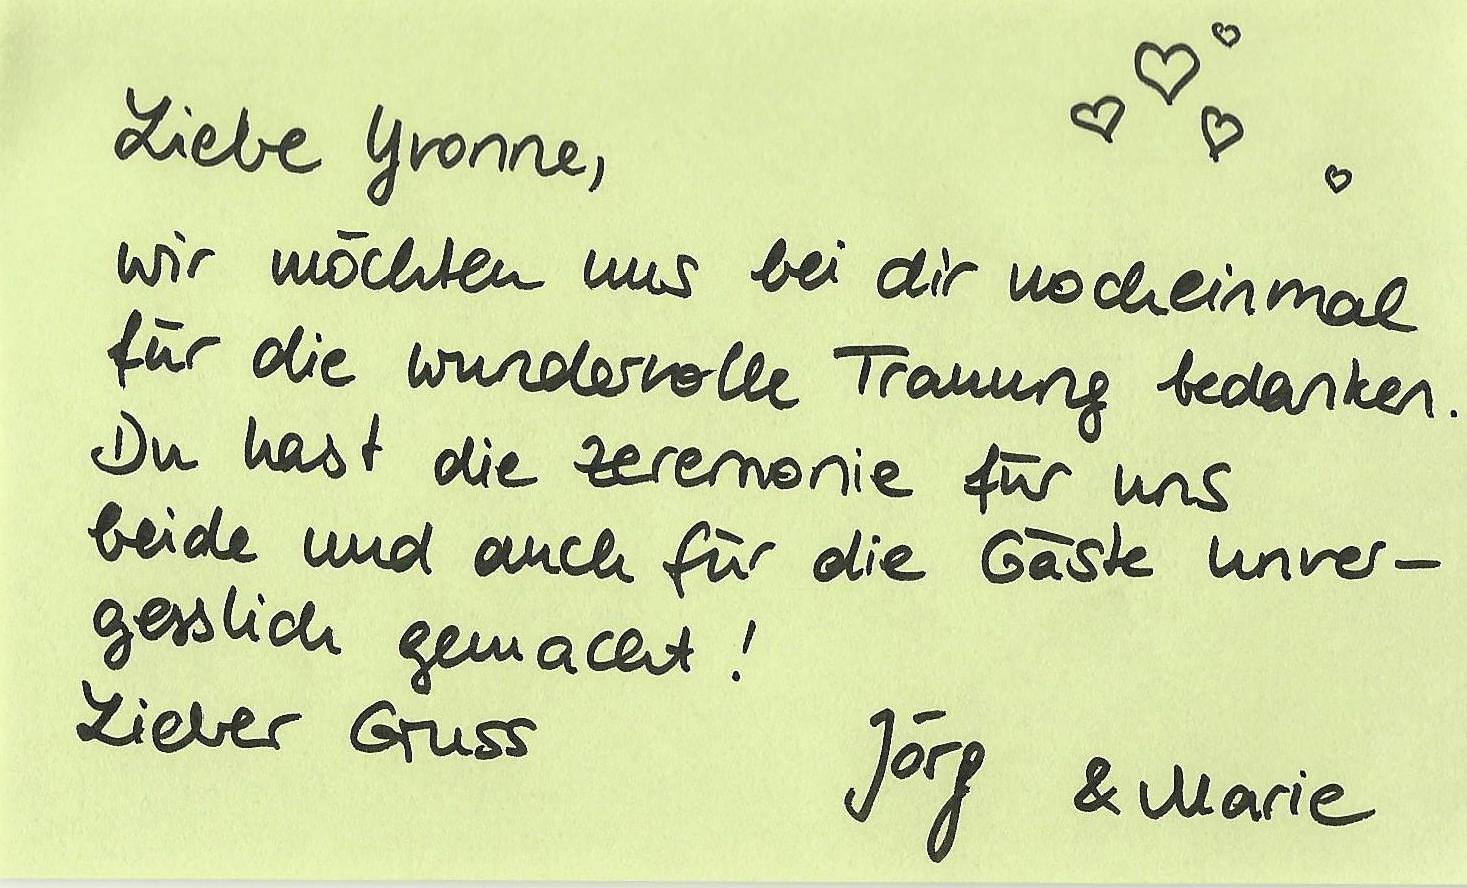 Liebe Yvonne,
wir möchten uns bei dir nocheinmal
für die wundervolle Trauung bedanken.
Du hast die Zeremonie für uns
beide und auch für die Gäste unver-
gesslich gemacht!
Lieber Gruss
Jörg & Marie